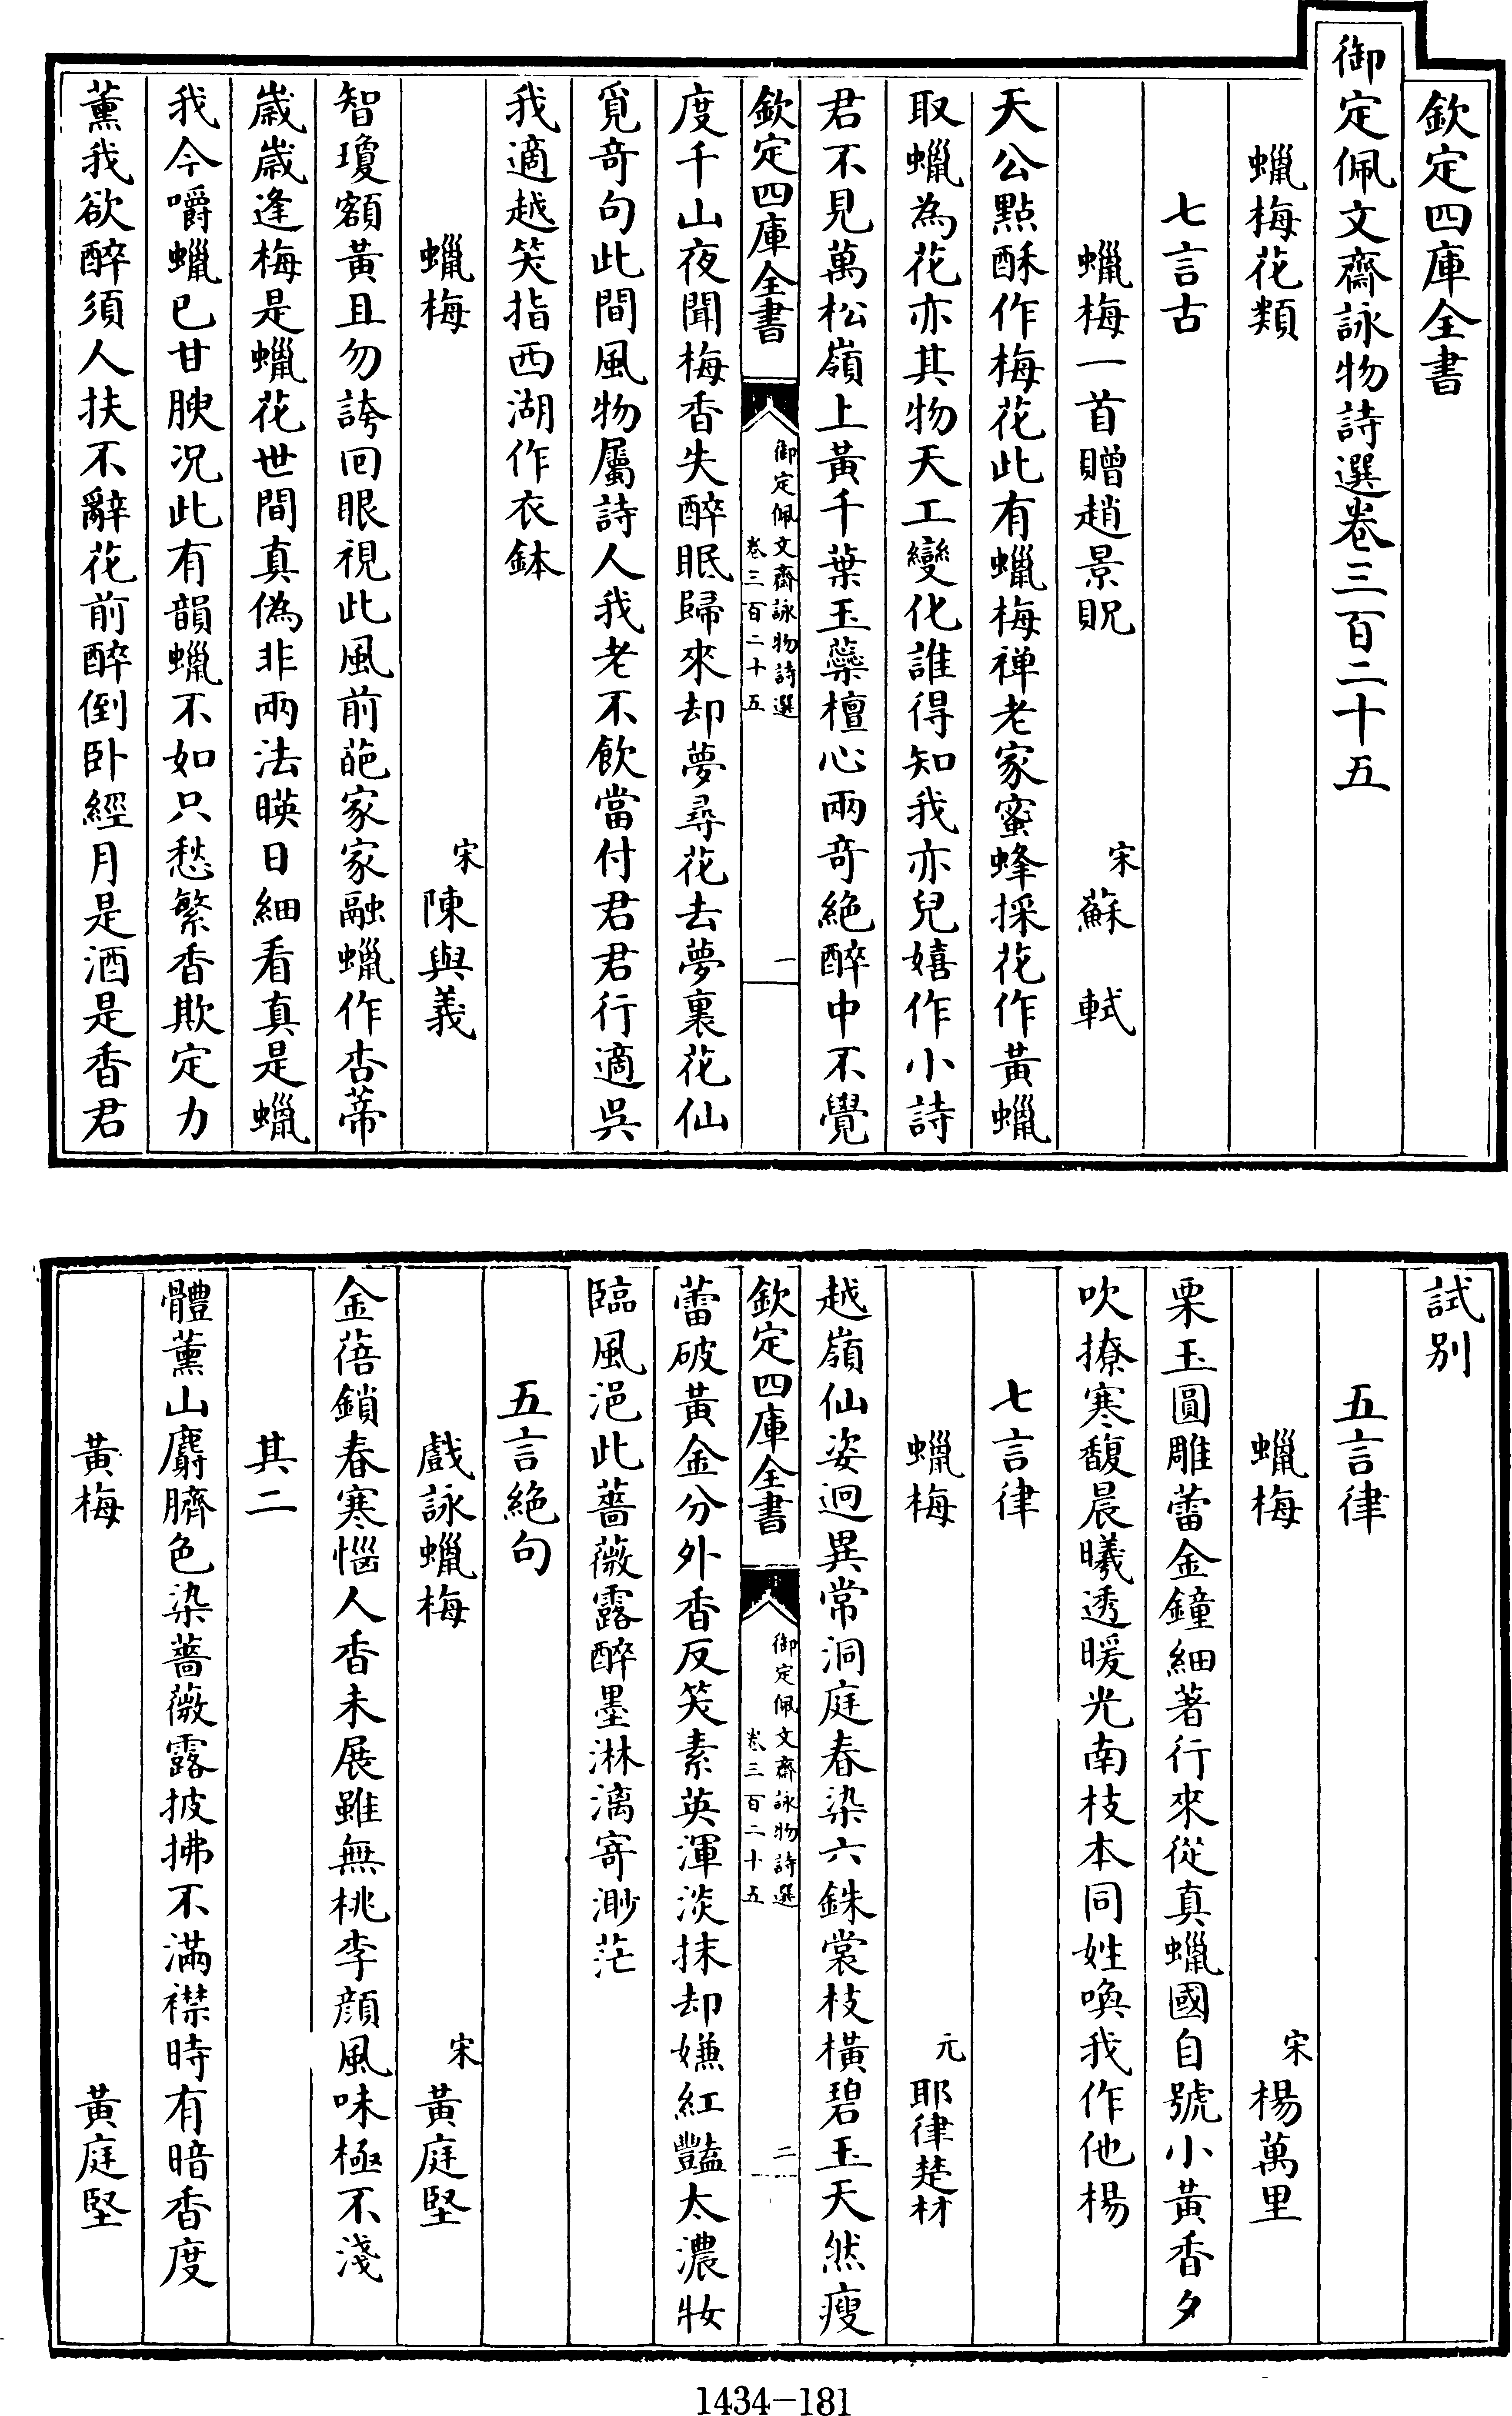 欽定四庫全書
御定佩文齋詠物詩選卷三百二十五
蠟梅花類
七言古
蠟梅一首贈趙景貺 宋 蘇軾
天公點酥作梅花此有蠟梅禅老家蜜蜂採花作黃蠟
取蠟為花亦其物天工變化誰得知我亦兒嬉作小詩
君不見萬松嶺上黃千葉玉蘂檀心兩奇絶醉中不覺
欽定四庫全書 御定佩文齋詠物詩選 卷三百二十五 一
度千山夜聞梅香失醉眠歸來却夢尋花去夢裏花仙
覓奇句此間風物屬詩人我老不飲當付君君行適吳
我適越笑指西湖作衣鉢
蠟梅 宋 陳與義
智瓊額黃且勿誇回眼視此風前葩家家融蠟作杏蒂
歲歲逢梅是蠟花世間真偽非兩法暎日細看真是蠟
我今嚼蠟已甘腴况此有韻蠟不如只愁繁香欺定力
薰我欲醉須人扶不辭花前醉倒卧經月是酒是香君
試别
五言律
蠟梅 宋 楊萬里
栗玉圓雕蕾金鐘細著行來從真蠟國自號小黃香夕
吹撩寒馥晨曦透暖光南枝本同姓喚我作他楊
七言律
蠟梅 元 耶律楚材
越嶺仙姿迥異常洞庭春染六銖裳枝橫碧玉天然瘦
欽定四庫全書 御定佩文齋詠物詩選 卷三百二十五 二
蕾破黃金分外香反笑素英渾淡抹却嫌紅豔太濃妝
臨風浥此薔薇露醉墨淋漓寄渺茫
五言絶句
戲詠蠟梅 宋 黃庭堅
金蓓鎖春寒惱人香未展雖無桃李顔風味極不淺
其二
體薰山麝臍色染薔薇露披拂不滿襟時有暗香度
黃梅 黃庭堅
1434-181